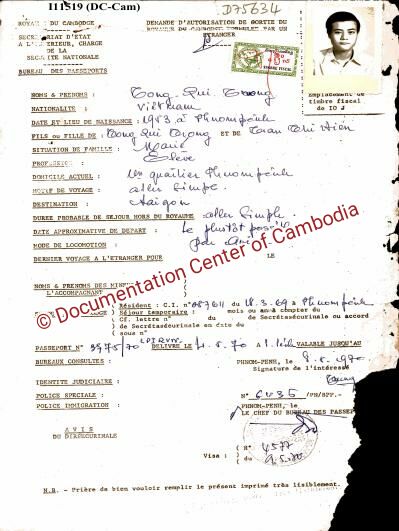 I11519 (DC-Cam)
D75634
ROYAUME DU CAMBODGE
DEMANDE D'AUTORISATION DE SORTIE DU
ROYAUME DU CAMBODGE FORMULEE PAR UN
ETRANGER
SECRETARIAT D'ETAT
A L'INTERIEUR, CHARGE
DE LA
SECURITE NATIONALE
BUREAU DES PASSEPORTS
Emplacement de
timbre fiscal
de 10
NOMS & PRENOMS : Tong Qui
NATIONALITE : Vietnam
DATE ET LIEU DE NAISSANCE : 1953 à Phnompenh
FILS ou FILLE de : Tong Qui ET DE Tran Thi Hiên
SITUATION DE FAMILLE : Marié
PROFESSION : Elève
DOMICILE ACTUEL : quartier Phnompenh
MOTIF DE VOYAGE : aller Simple
DESTINATION : Saigon
DUREE PROBABLE DE SEJOUR HORS DU ROYAUME aller Simple
DATE APPROXIMATIVE DE DEPART : Le plustôt
MODE DE LOCOMOTION : par
DERNIER VOYAGE A L'ETRANGER POUR LE
NOMS & PRENOMS DES
L'ACCOMPAGNANT
© Documentation Center of Cambodia
Résident : C.I. n° du 18.3.69 à Phnompenh
Séjour temporaire : mois ou an à compter du
Cf. lettre n° du de Secrétasdécurinale ou accord
de Secrétasdécurinale en date du
sous n°
PASSEPORT N° 3975/70 DELIVRE LE VALABLE JUSQU'AU
BUREAUX CONSULTES : PHNOM-PENH, 1970
Signature de l'intéressé
IDENTITE JUDICIAIRE :
POLICE SPECIALE : N° /PH/SPP.-
POLICE IMMIGRATION : PHNOM-PENH, le
LE CHEF DU BUREAU DES PASSEP
A V I S
DU DIRSECURINALE
Visa : (N° 4577
(du
N.B. - Prière de bien vouloir remplir le présent imprimé très lisiblement.